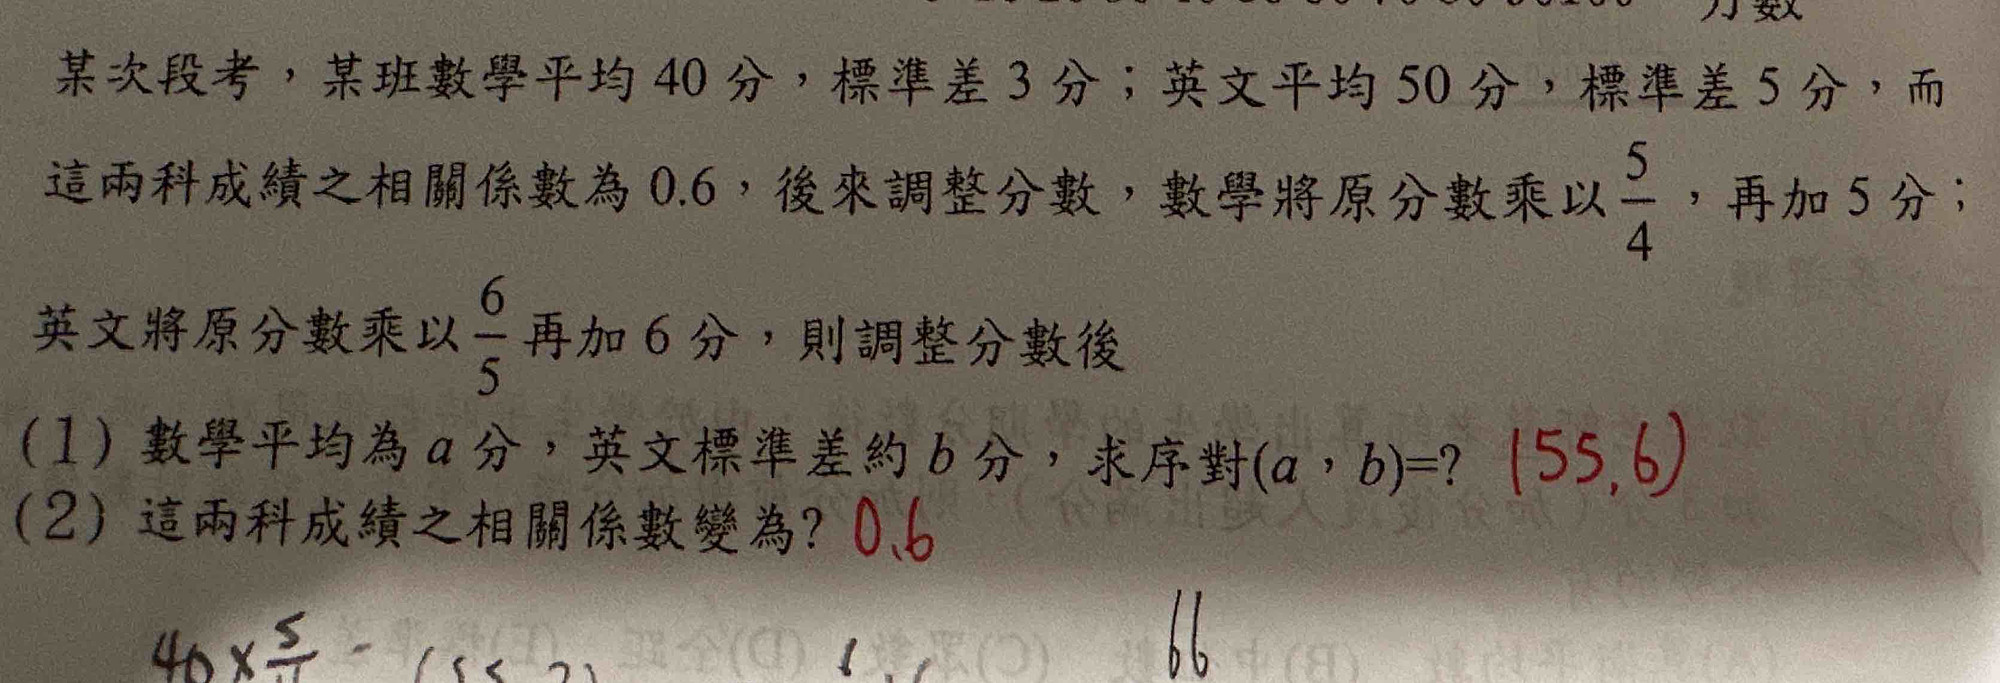 分數
某次段考，某班數學平均 40 分，標準差 3 分；英文平均 50 分，標準差 5 分，而
這兩科成績之相關係數為 0.6，後來調整分數，數學將原分數乘以 5/4，再加 5 分；
英文將原分數乘以 6/5 再加 6 分，則調整分數後
(1) 數學平均為 a 分，英文標準差約 b 分，求序對(a，b)=? (55,6)
(2) 這兩科成績之相關係數變為? 0.6
66
40×5